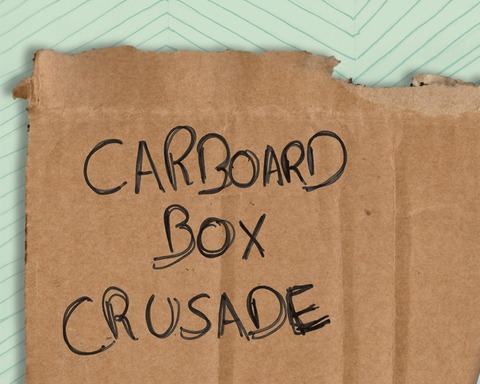 CARBOARD
BOX
CRUSADE